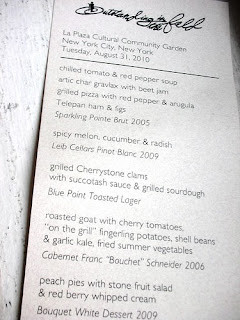 Outstanding in the field
La Plaza Cultural Community Garden
New York City, New York
Tuesday, August 31, 2010
chilled tomato & red pepper soup
artic char gravlax with beet jam
grilled pizza with red pepper & arugula
Telepan ham & figs
Sparkling Pointe Brut 2005
spicy melon, cucumber & radish
Leib Cellars Pinot Blanc 2009
grilled Cherrystone clams
with succotash sauce & grilled sourdough
Blue Point Toasted Lager
roasted goat with cherry tomatoes,
"on the grill" fingerling potatoes, shell beans
& garlic kale, fried summer vegetables
Cabernet Franc "Bouchet" Schneider 2006
peach pies with stone fruit salad
& red berry whipped cream
Bouquet White Dessert 2009